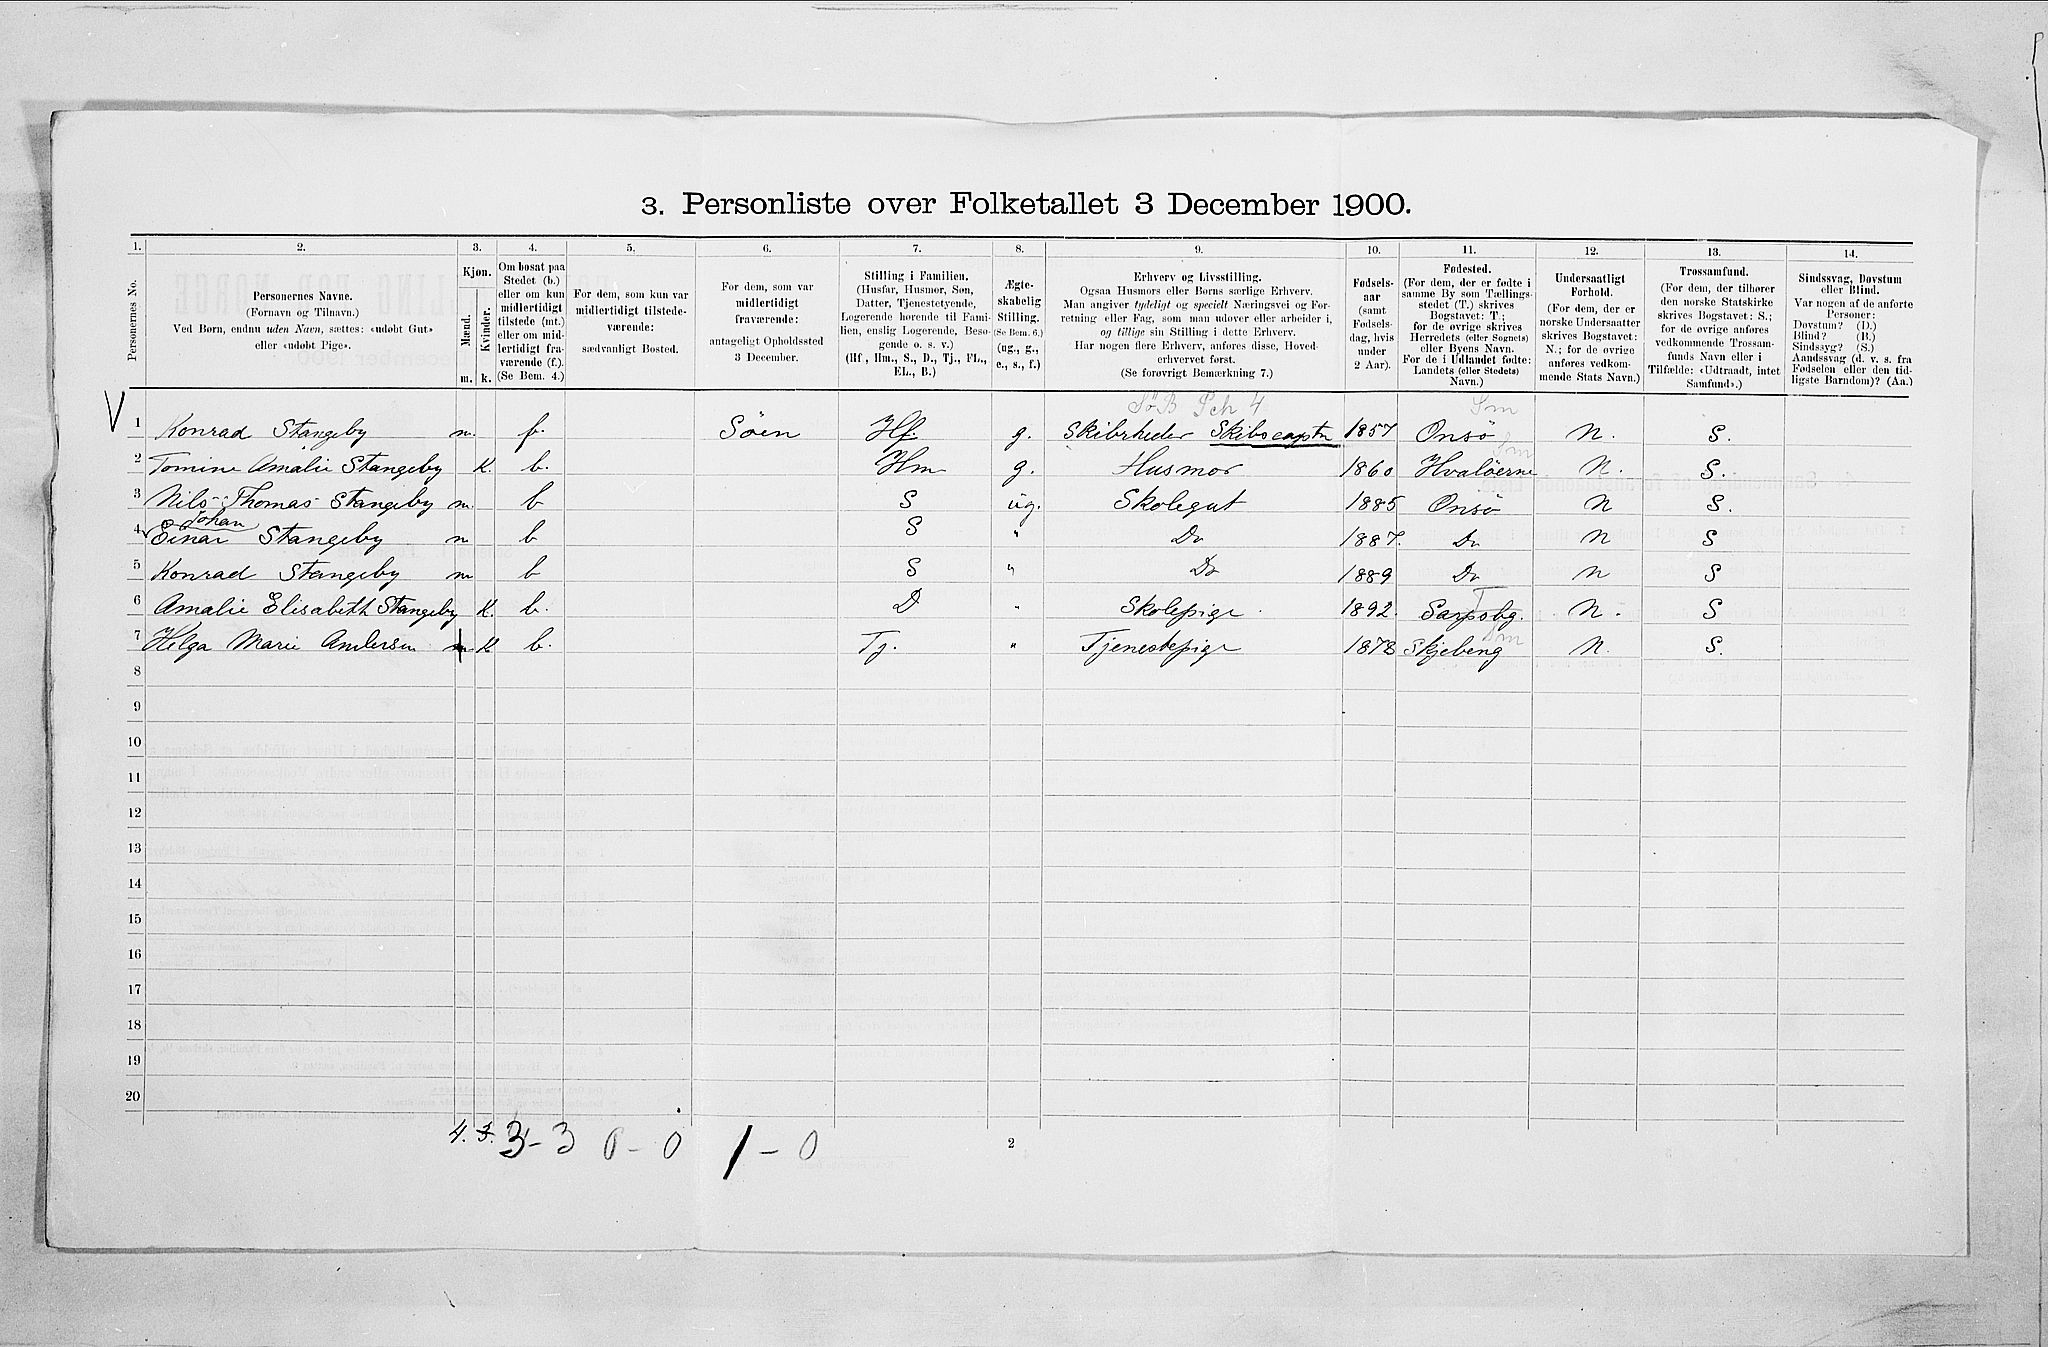 3. Personliste over Folketallet 3 December 1900.
1. 2. 3. 4. 5. 6. 7. 8. 9. 10. 11. 12. 13. 14.
Personernes No.
Personernes Navne.
(Fornavn og Tilnavn.)
Ved Børn, endnu uden Navn, sættes: «udøbt Gut»
eller «udøbt Pige».
Kjøn.
Mænd. Kvinder.
m. k.
Om bosat paa
Stedet (b.)
eller om kun
midlertidigt
tilstede (mt.)
eller om mid-
lertidigt fra-
værende (f.).
(Se Bem. 4.)
For dem, som kun var
midlertidigt tilstede-
værende:
sædvanligt Bosted.
For dem, som var
midlertidigt
fraværende:
antageligt Opholdssted
3 December.
Stilling i Familien.
(Husfar, Husmor, Søn,
Datter, Tjenestetyende,
Logerende hørende til Fami-
lien, enslig Logerende, Besø-
gende o. s. v.)
(Hf., Hm., S., D., Tj., FL.,
EL., B.)
Ægte-
skabelig
Stilling.
(Se Bem. 6.)
(ug., g.,
e., s., f.)
Erhverv og Livsstilling.
Ogsaa Husmors eller Børns særlige Erhverv.
Man angiver tydeligt og specielt Næringsvei og For-
retning eller Fag, som man udøver eller arbeider i,
og tillige sin Stilling i dette Erhverv.
Har nogen flere Erhverv, anføres disse, Hoved-
erhvervet først.
(Se forøvrigt Bemærkning 7.)
Fødsels-
aar
(samt
Fødsels-
dag, hvis
under
2 Aar).
Fødested.
(For dem, der er fødte i
samme By som Tællings-
stedet (T.) skrives
Bogstavet: T.;
for de øvrige skrives
Herredets (eller Sognets)
eller Byens Navn.
For de i Udlandet fødte:
Landets (eller Stedets)
Navn.)
Undersaatligt
Forhold.
(For dem, der er
norske Undersaatter
skrives Bogstavet:
N.; for de øvrige
anføres vedkom-
mende Stats Navn.)
Trossamfund.
(For dem, der tilhører
den norske Statskirke
skrives Bogstavet: S.;
for de øvrige anføres
vedkommende Trossam-
funds Navn eller i
Tilfælde: «Udtraadt, intet
Samfund».)
Sindssvag, Døvstum
eller Blind.
Var nogen af de anførte
Personer:
Døvstum? (D.)
Blind? (B.)
Sindssyg? (S.)
Aandssvag (d. v. s. fra
Fødselen eller den tid-
ligste Barndom)? (Aa.)
V SøB Sch 4 Sm
1 Konrad Stangeby m. f. Søen Hf. g. Skibsrheder Skibscaptn 1857 Onsø N. S.
Sm
2 Tomine Amalie Stangeby K. b. Hm g. Husmor 1860 Hvaløerne N. S.
3 Nils Thomas Stangeby m. b S ug. Skolegut 1885 Onsø N S.
Johan
4 Einar Stangeby m b S " Do 1887. Do N S
5 Konrad Stangeby m b S " Do 1889 Do N S
T
6 Amalie Elisabeth Stangeby K. b. D " Skolepige. 1892. Sarpsbg. N. S
Sm
7 Helga Marie Andersen K b. Tj. " Tjenestepige 1878 Skjeberg N. S.
8
9
10
11
12
13
14
15
16
17
18
19
20
4. 3. 3-3 0-0 1-0
2